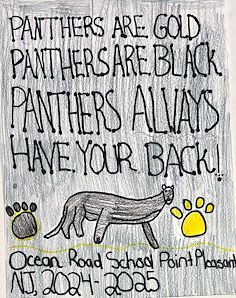 PANTHERS ARE GOLD
PANTHERS ARE BLACK
PANTHERS ALWAYS
HAVE YOUR BACK!
Ocean Road School Point Pleasant
NJ, 2024-2025